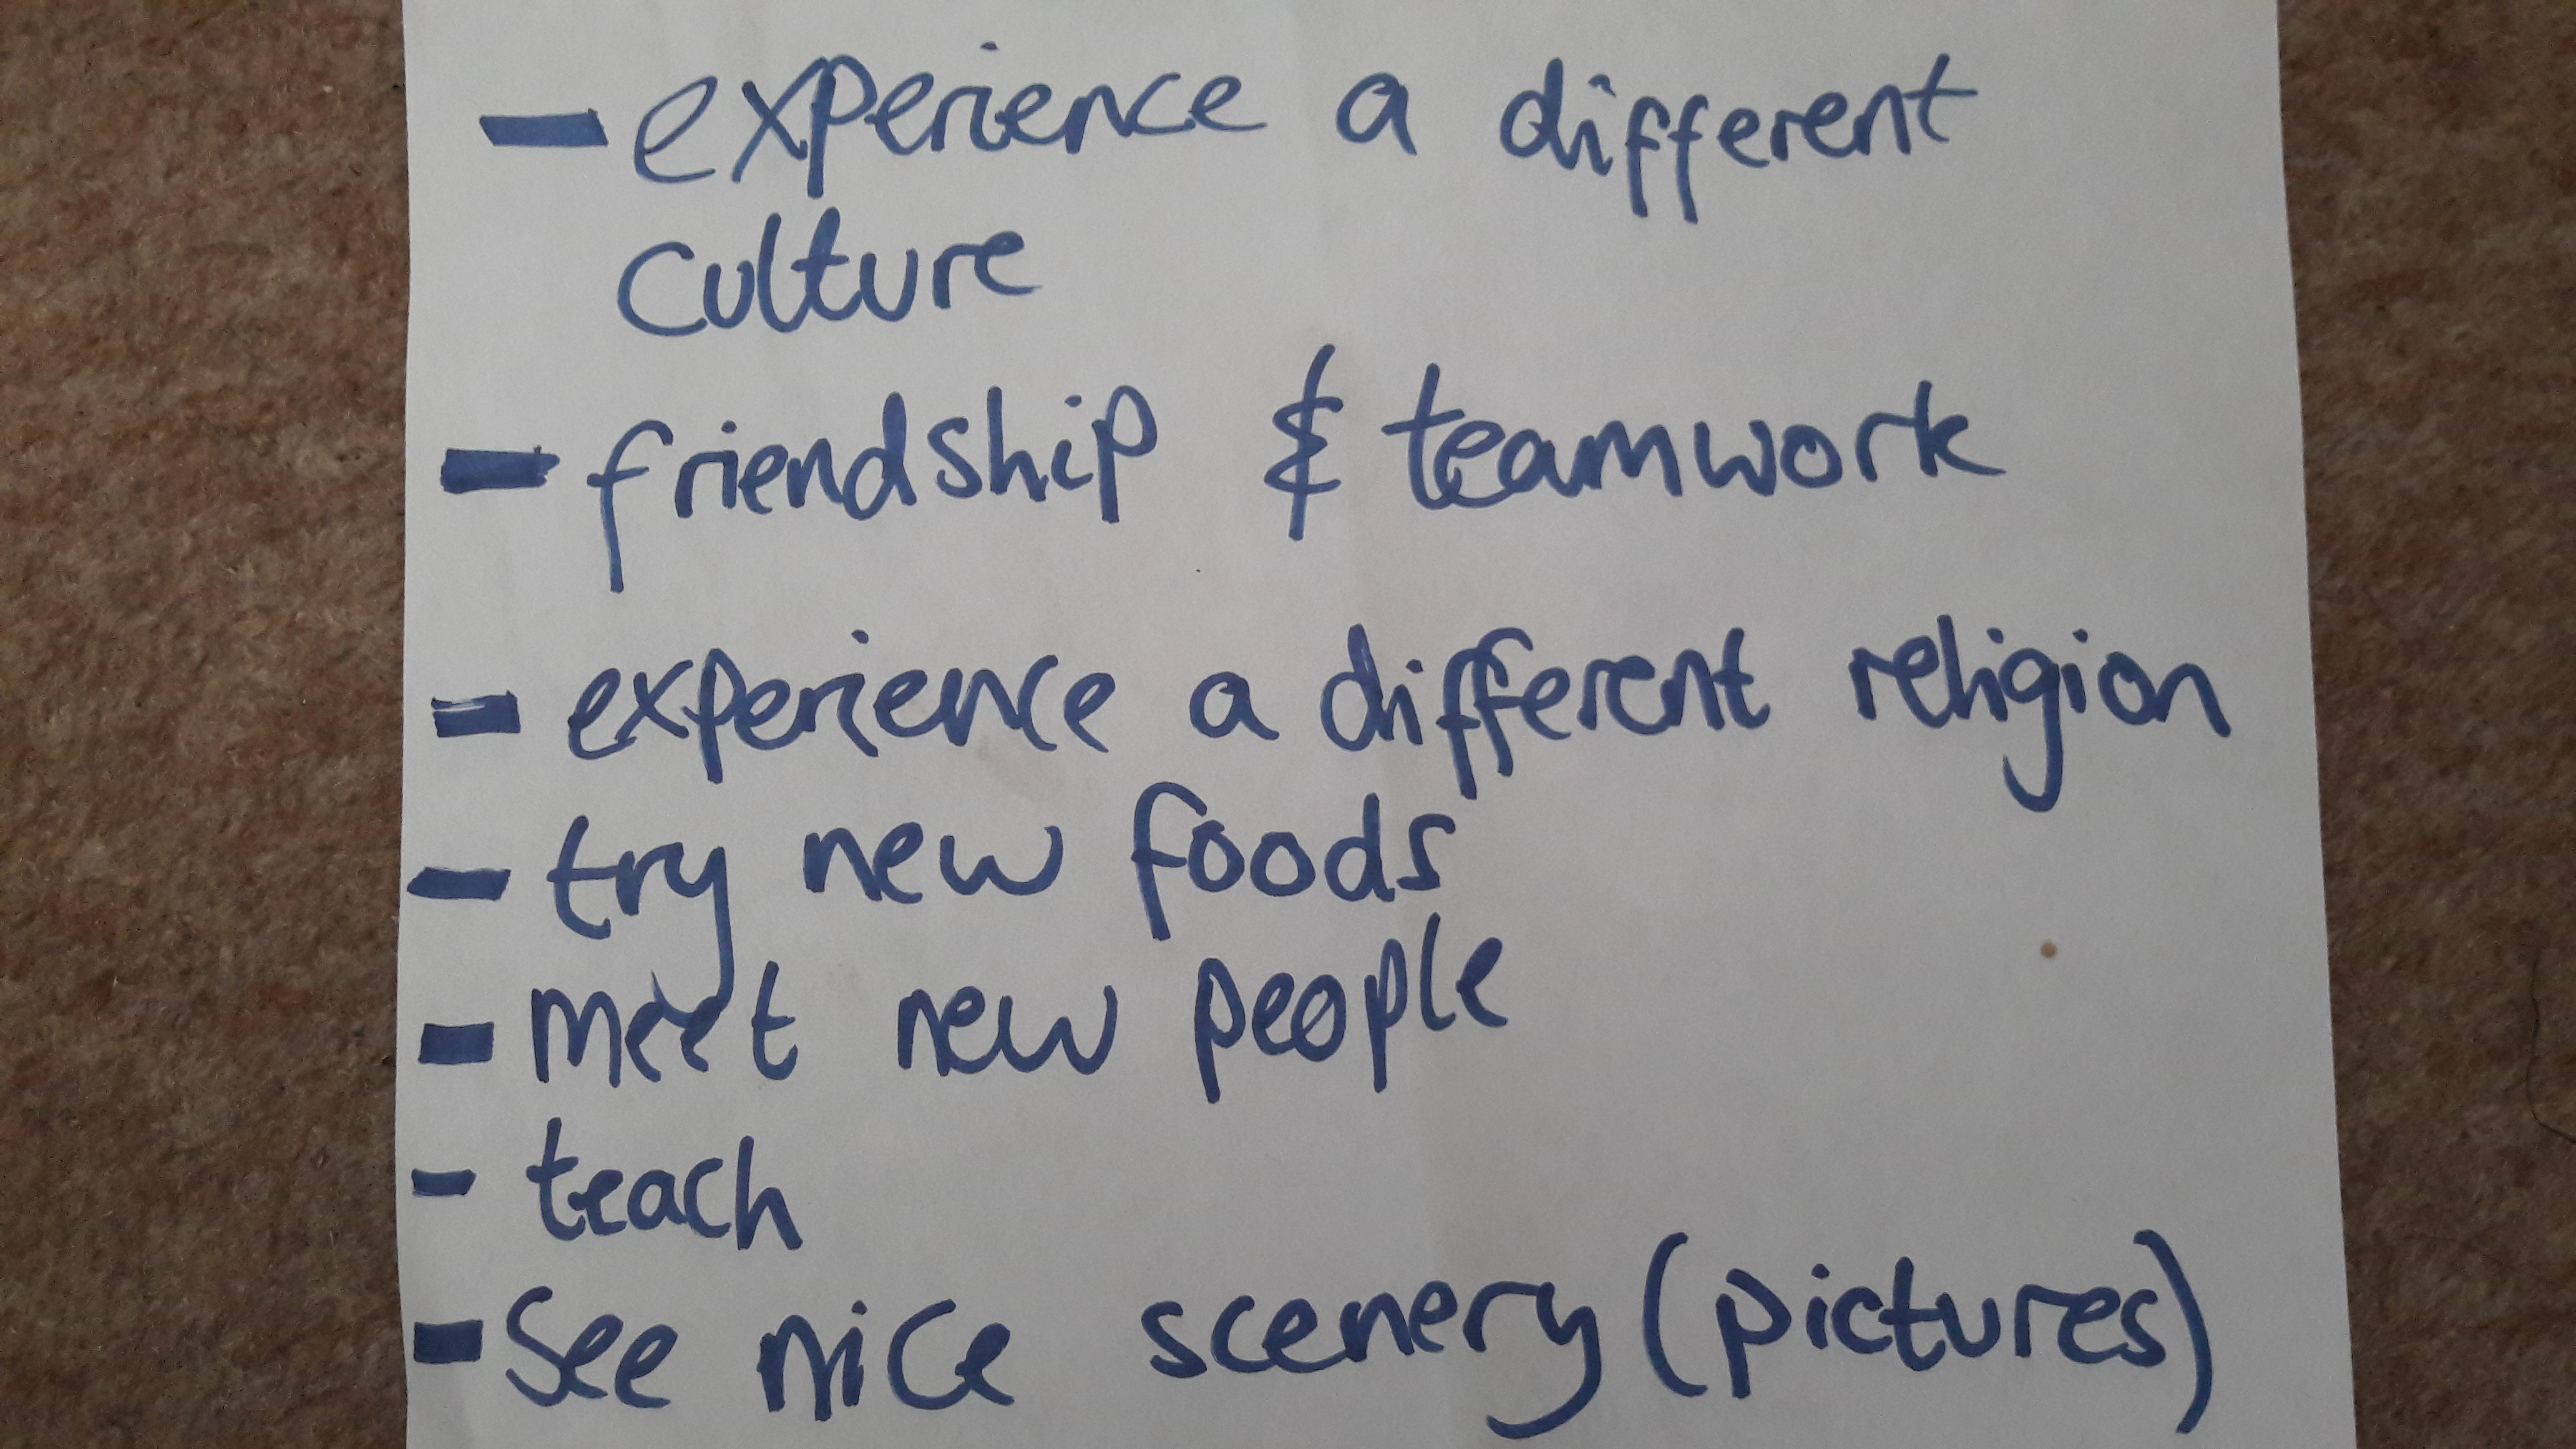 - experience a different
culture
- friendship & teamwork
- experience a different religion
- try new foods
- meet new people
- teach
- See nice scenery (pictures)